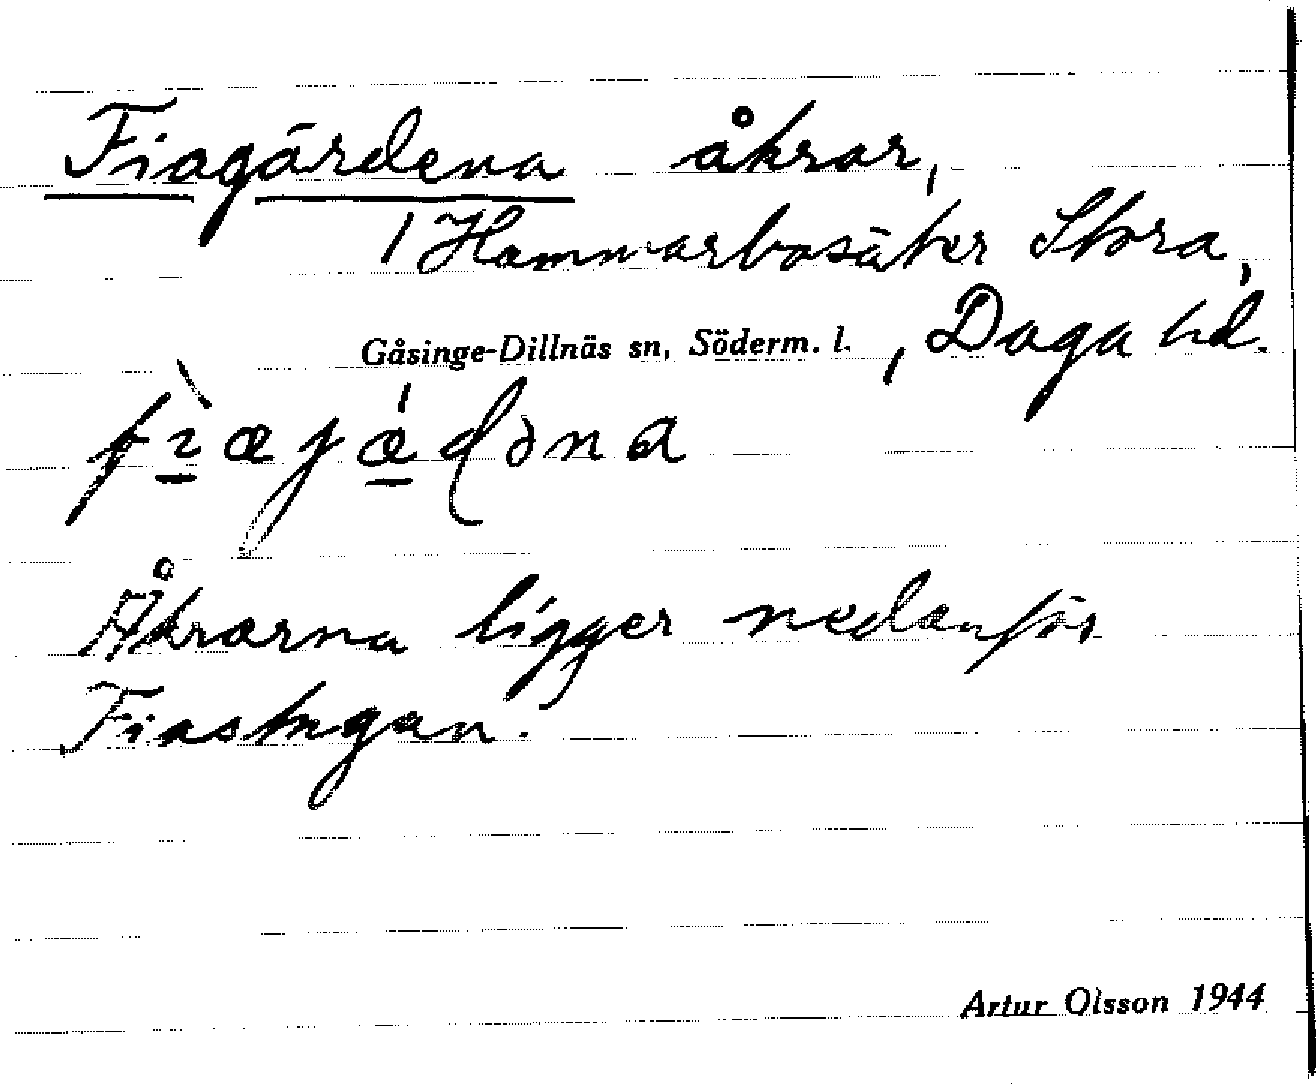 Fiagärdena åkrar,
Hammarbosäter Stora,
Gåsinge-Dillnäs sn, Söderm. l., Daga hd.
Åkrarna ligger nedanför
Fiastugan.
Artur Olsson 1944